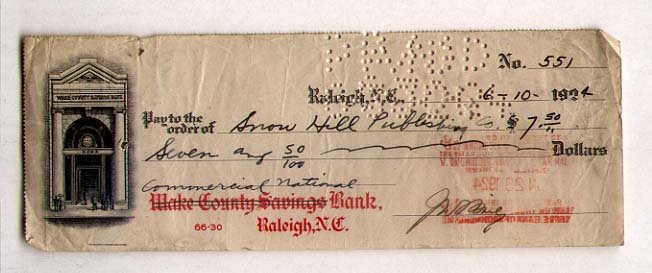 PAID
No. 551
Raleigh, N.C., 6-10-1924
WAKE COUNTY SAVINGS BANK
Pay to the
order of Snow Hill Publishing Co. $ 7 50
Seven and 50/100 Dollars
Commercial National
Wake County Savings Bank,
66-30 Raleigh, N.C.